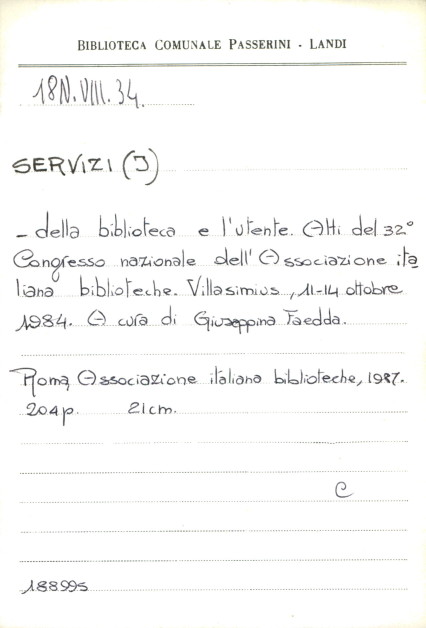 BIBLIOTECA COMUNALE PASSERINI - LANDI
18N.VIII.34.
SERVIZI (I)
- della biblioteca e l'utente. Atti del 32°
Congresso nazionale dell'Associazione ita
liana biblioteche. Villasimius, 11-14 ottobre
1984. A cura di Giuseppina Faedda.
Roma, Associazione italiana biblioteche, 1987.
204 p. 21 cm.
C
188995